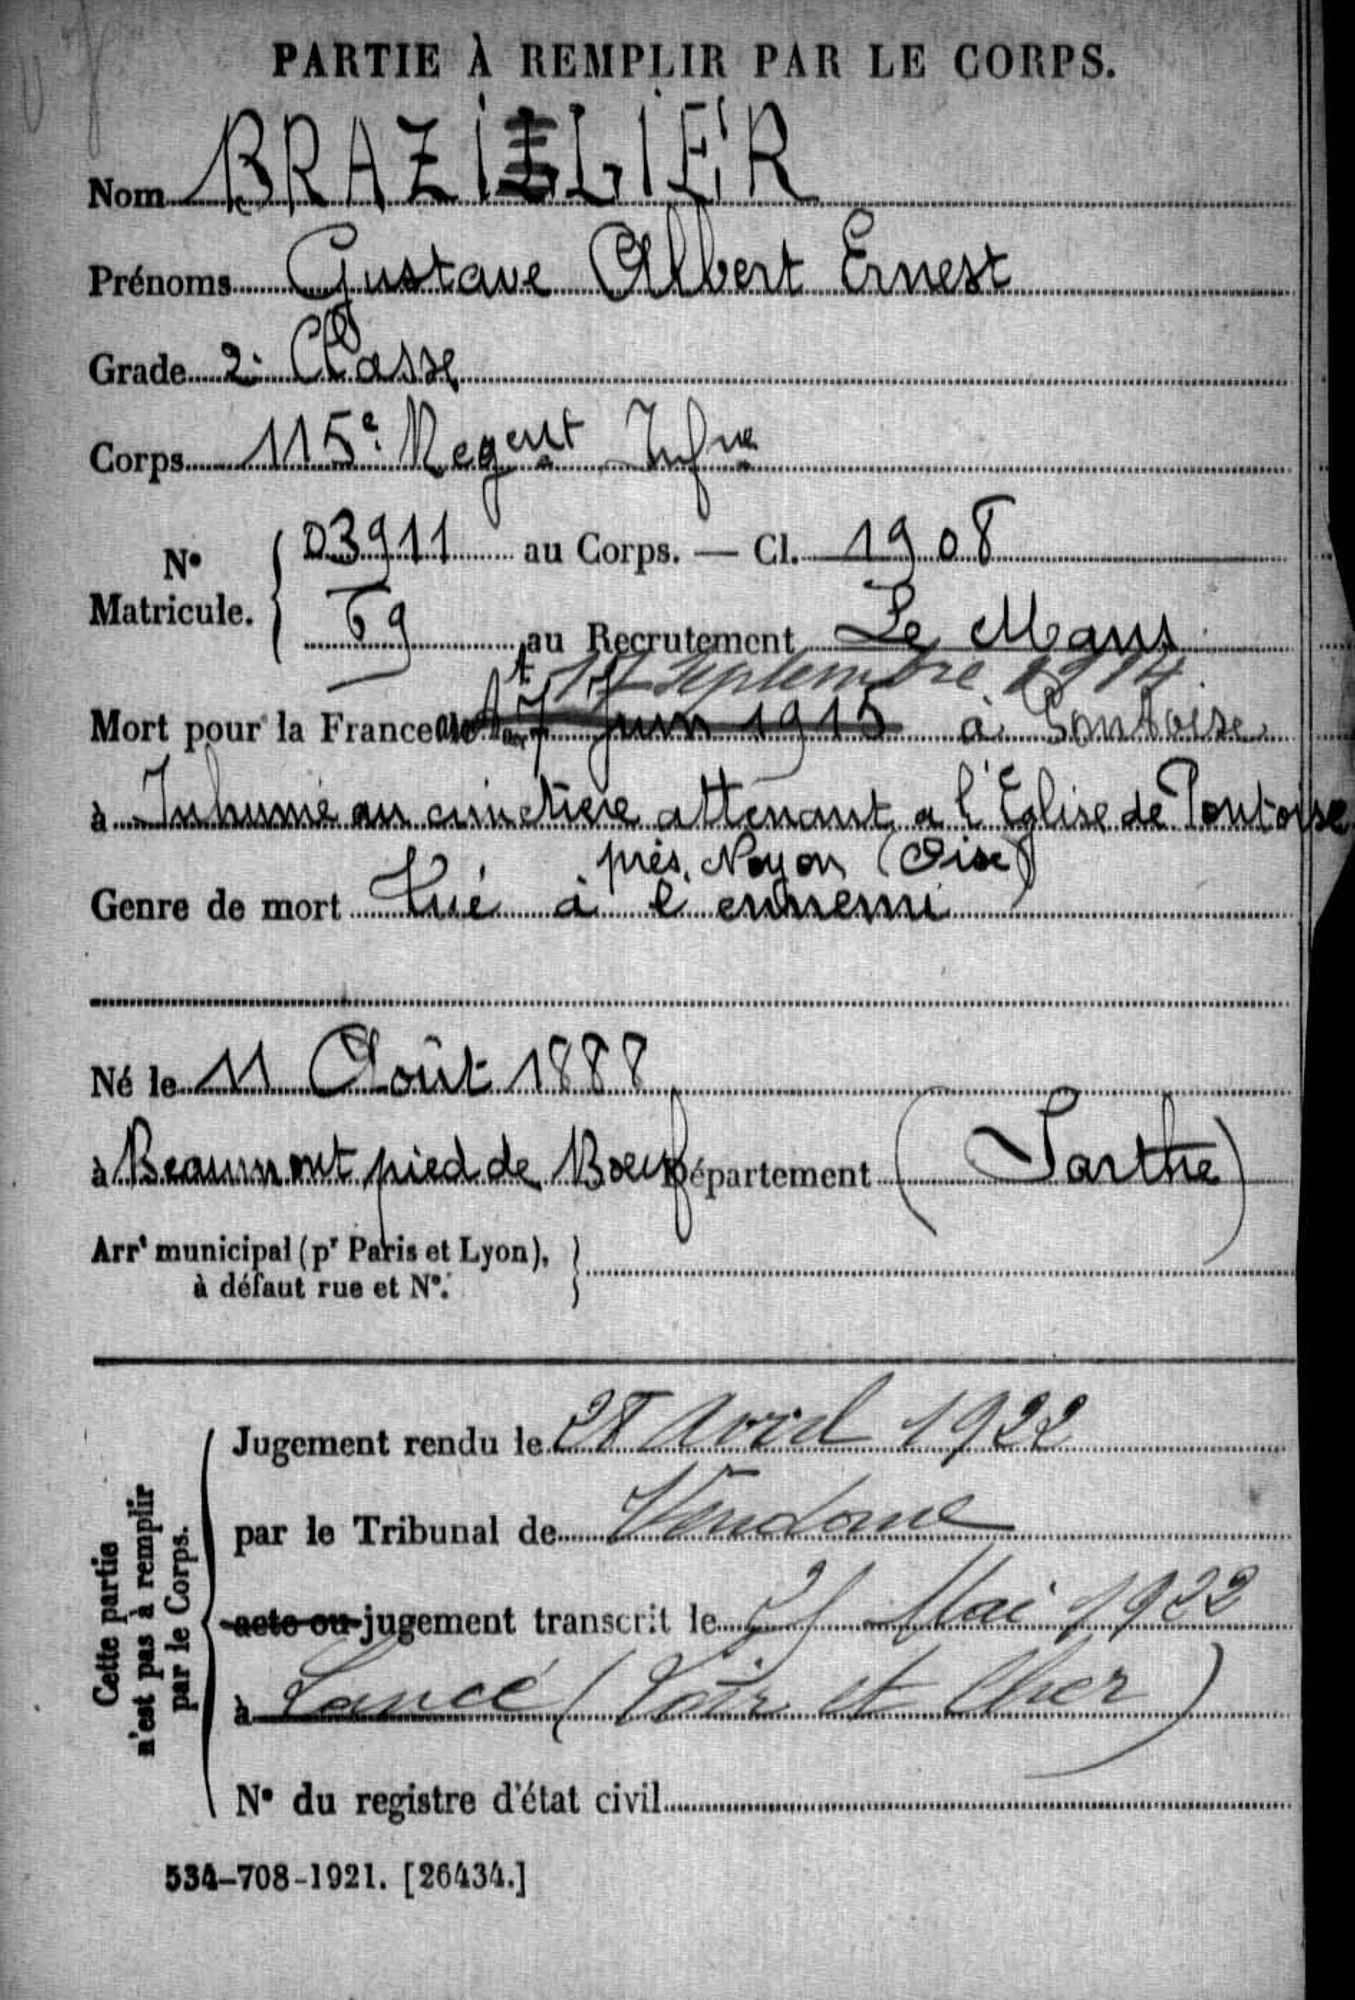 PARTIE À REMPLIR PAR LE CORPS.
Nom BRAZILIER
Prénoms Gustave Albert Ernest
Grade 2e Classe
Corps 115e Regent Infie
No Matricule. 03911 au Corps. — Cl. 1908
69 au Recrutement Le Mans
17 Septembre 1914
Mort pour la France le 7 Juin 1915 à Pontoise
à Inhumé au cimetière attenant a l'Église de Pontoise
près Noyon (Oise)
Genre de mort Tué à l'ennemi
Né le 11 Août 1888
à Beaumont pied de Boeuf Département (Sarthe)
Arrt municipal (pr Paris et Lyon),
à défaut rue et No.
Cette partie
n'est pas à remplir
par le Corps.
Jugement rendu le 28 Avril 1922
par le Tribunal de Vendome
acte ou jugement transcrit le Mai 1922
à Lancé (Loir et Cher)
No du registre d'état civil
534-708-1921. [26434.]